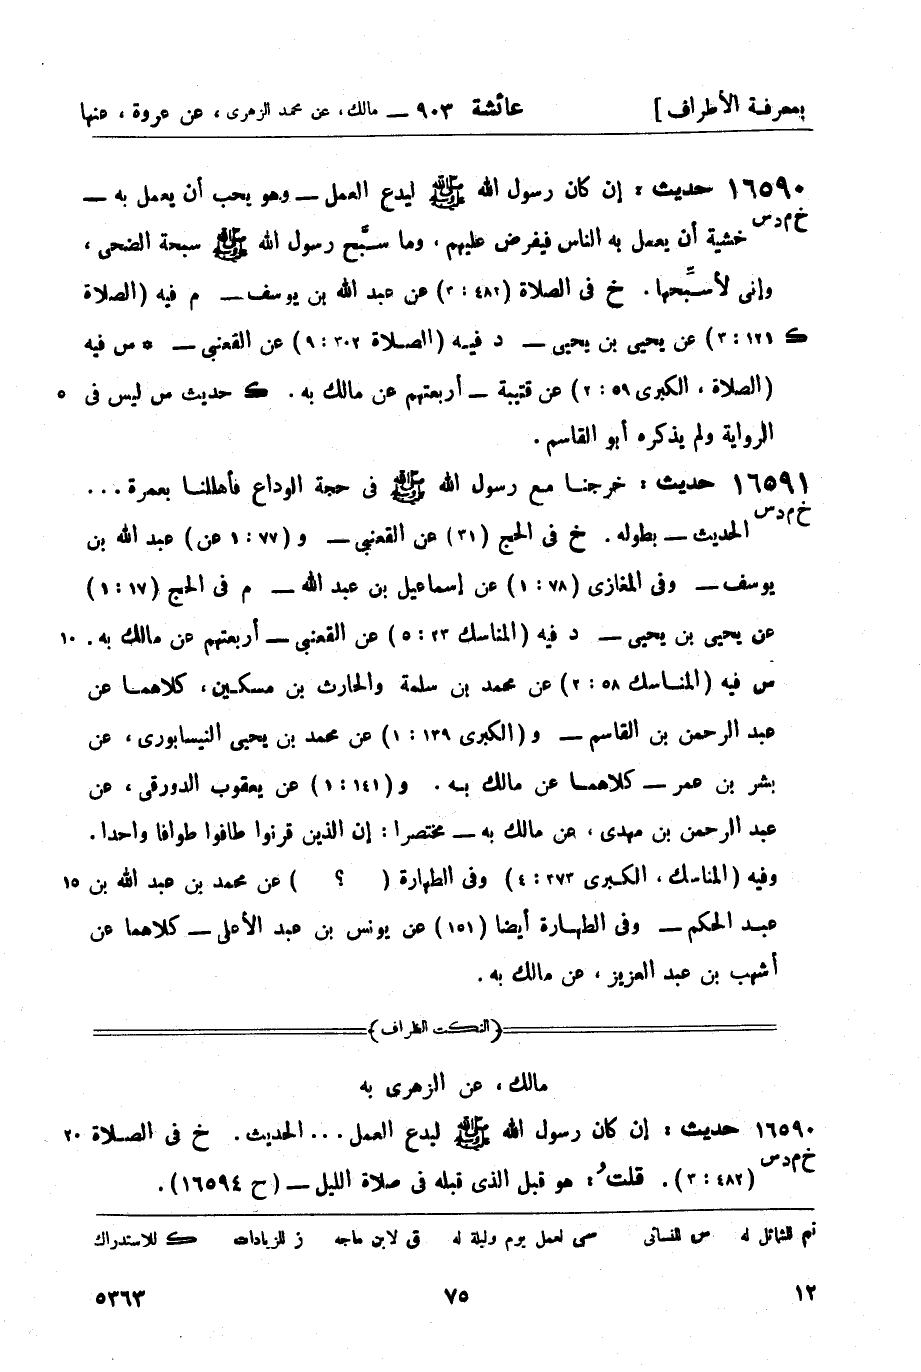 بمعرفة الأطراف] عائشة ٩٠٣ — مالك، عن محمد الزهرى، عن عروة، عنها
١٦٥٩٠ حديث: إن كان رسول الله ﷺ ليدع العمل — وهو يحب أن يعمل به —
خ م د س خشية أن يعمل به الناس فيفرض عليهم، وما سبَّح رسول الله ﷺ سبحة الضحى،
وإنى لأسبِّحها. خ فى الصلاة (٤٨٢ : ٣) عن عبد الله بن يوسف — م فيه (الصلاة
ك ١٢١ : ٣) عن يحيى بن يحيى — د فيه (الصلاة ٣٠٢ : ٩) عن القعنبى — * س فيه
(الصلاة، الكبرى ٥٩ : ٢) عن قتيبة — أربعتهم عن مالك به. ك حديث س ليس فى ٥
الرواية ولم يذكره أبو القاسم.
١٦٥٩١ حديث: خرجنا مع رسول الله ﷺ فى حجة الوداع فأهللنا بعمرة...
خ م د س الحديث — بطوله. خ فى الحج (٣١) عن القعنبى — و (٧٧ : ١ عن) عبد الله بن
يوسف — وفى المغازى (٧٨ : ١) عن إسماعيل بن عبد الله — م فى الحج (١٧ : ١)
عن يحيى بن يحيى — د فيه (المناسك ٢٣ : ٥) عن القعنبى — أربعتهم عن مالك به. ١٠
س فيه (المناسك ٥٨ : ٢) عن محمد بن سلمة والحارث بن مسكين، كلاهما عن
عبد الرحمن بن القاسم — و (الكبرى ١٣٩ : ١) عن محمد بن يحيى النيسابورى، عن
بشر بن عمر — كلاهما عن مالك به. و (١٤١ : ١) عن يعقوب الدورقى، عن
عبد الرحمن بن مهدى، عن مالك به — مختصرا: إن الذين قرنوا طافوا طوافا واحدا.
وفيه (المناسك، الكبرى ٢٧٣ : ٤) وفى الطهارة ( ؟ ) عن محمد بن عبد الله بن ١٥
عبد الحكم — وفى الطهارة أيضا (١٥١) عن يونس بن عبد الأعلى — كلاهما عن
أشهب بن عبد العزيز، عن مالك به.
{النكت الظراف}
مالك، عن الزهرى به
١٦٥٩٠ حديث: إن كان رسول الله ﷺ ليدع العمل... الحديث. خ فى الصلاة ٢٠
خ م د س (٤٨٢ : ٣). قلتُ: هو قبل الذى قبله فى صلاة الليل — (ح ١٦٥٩٤).
تم للشمائل له س للنسائى سى لعمل يوم وليلة له ق لابن ماجه ز للزيادات ك للاستدراك
١٢ ٧٥ ٥٣٦٣